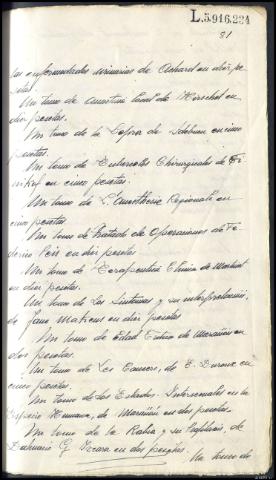 L.5.916.234
81
las enfermedades urinarias de Achard en diez pe-
setas.
Un tomo de local de Herschel en
diez pesetas.
Un tomo de la Lepra de en cinco
pesetas.
Un tomo de Chirurgicales de
en cinco pesetas.
Un tomo de L'Anesthesie Regionale en
cinco pesetas.
Un tomo de Tratado de Operaciones de Fe-
derico en diez pesetas.
Un tomo de Terapeutica Clinica de
en diez pesetas.
Un tomo de Los Sintomas y su interpretacion,
de Jame en diez pesetas
Un tomo de Edad Critica de Marañon en
dos pesetas.
Un tomo de Les Cancers, de E. en
cinco pesetas.
Un tomo de los Estados Intersexuales en la
Especie Humana, de Marañon en dos pesetas.
Un tomo de la Rabia y su Profilaxis, de
Dalmacio G. en dos pesetas.
Un tomo de